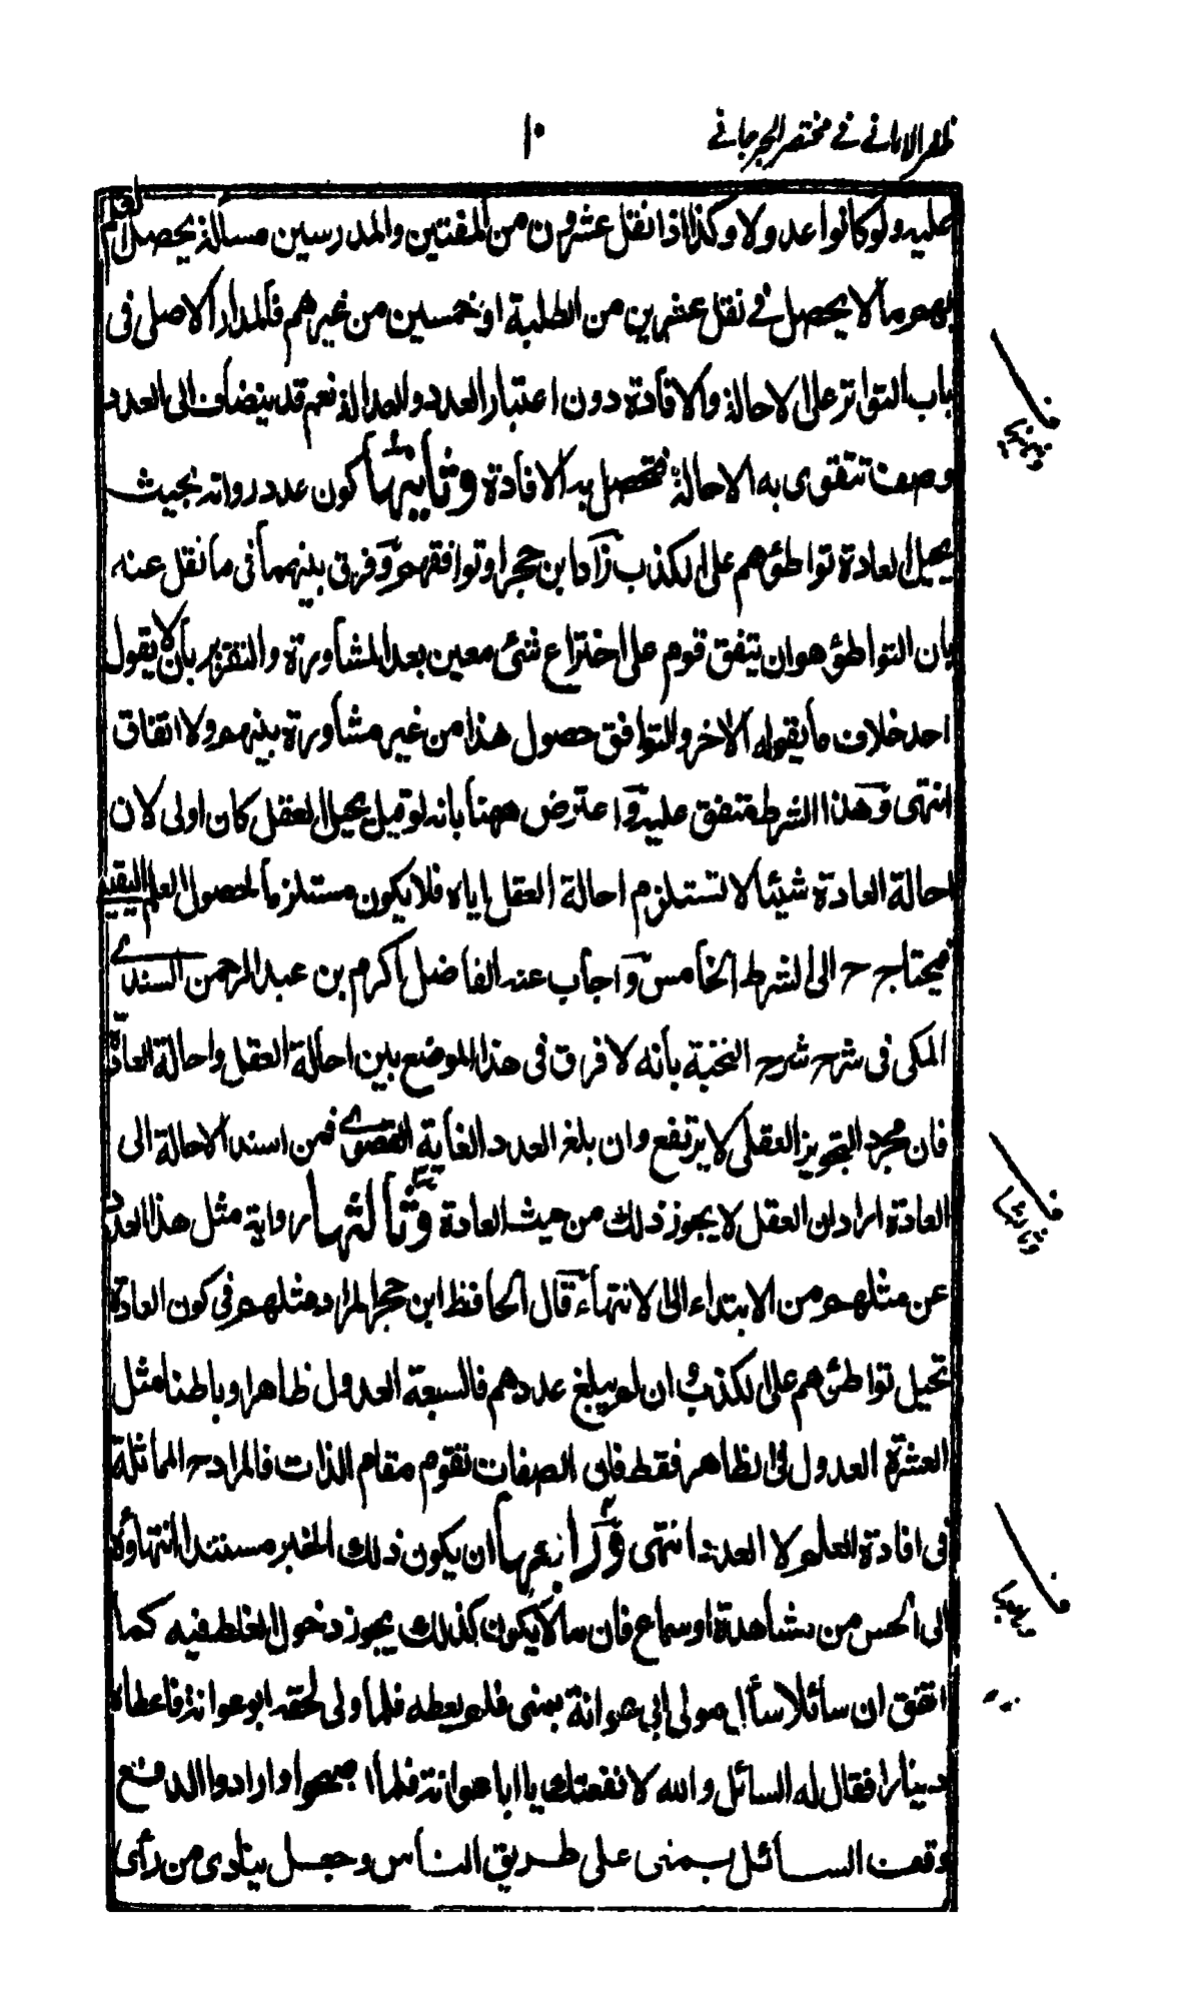 ظفر الاماني في مختصر الجرجاني
١٠
عليه ولو كانوا عدولا وكذا اذا نقل عشرون من المفتين والمدرسين مسألة يحصل العلم
بهم ما لا يحصل في نقل عشرين من الطلبة او خمسين من غيرهم فالمدار الاصلى فى
باب التواتر على الاحالة والافادة دون اعتبار العدد والعدالة نعم قد ينضاف الى العدد
وصف تتقوى به الاحالة فتحصل به الافادة وثانيتها كون عدد رواته بحيث
يحيل العادة تواطئهم على الكذب زاد ابن حجر او توافقهم وفرق بينهما فى ما نقل عنه
بان التواطئ هو ان يتفق قوم على اختراع شئ معين بعد المشاورة والتقرير بان لا يقول
احد خلاف ما يقوله الآخر والتوافق حصول هذا من غير مشاورة بينهم ولا اتفاق
انتهى وهذا الشرط متفق عليه واعترض ههنا بانه لو قيل يحيل العقل كان اولى لان
احالة العادة شيئا لا تستلزم احالة العقل اياه فلا يكون مستلزما لحصول العلم اليقينى
فيحتاج ح الى الشرط الخامس واجاب عنه الفاضل اكرم بن عبد الرحمن السندے
المكى فى شرح شرح النخبة بانه لا فرق فى هذا الموضع بين احالة العقل واحالة العادة
فان مجرد التجويز العقلى لا يرتفع وان بلغ العدد الغاية القصوے فمن اسند الاحالة الى
العادة اراد ان العقل لا يجوز ذلك من حيث العادة وثالثها رواية مثل هذا العدد
عن مثلهم من الابتداء الى الانتهاء قال الحافظ ابن حجر المراد مثلهم فى كون العادة
تحيل تواطئهم على الكذب وان لم يبلغ عددهم فالسبعة العدول ظاهرا وباطنا مثل
العشرة العدول فى الظاهر فقط فان الصفات تقوم مقام الذات فالمراد ح المماثلة
فى افادة العلم لا العدد انتهى ورابعها ان يكون ذلك الخبر مستند انتهاؤه
الى الحس من مشاهدة او سماع فان ما لا يكون كذلك يجوز دخول الغلط فيه كما
اتفق ان سائلا سأل مولى ابى عوانة بمنى فلم يعطه فلما ولى لحقه ابو عوانة فاعطاه
دينارا فقال له السائل والله لانفعنك يا ابا عوانة فلما اصبحوا وارادوا الدفع
وقف السائل بمنى على طريق الناس وجعل ينادى من رأى
ف
وثانيتها
ف
وثالثها
ف
ورابعها